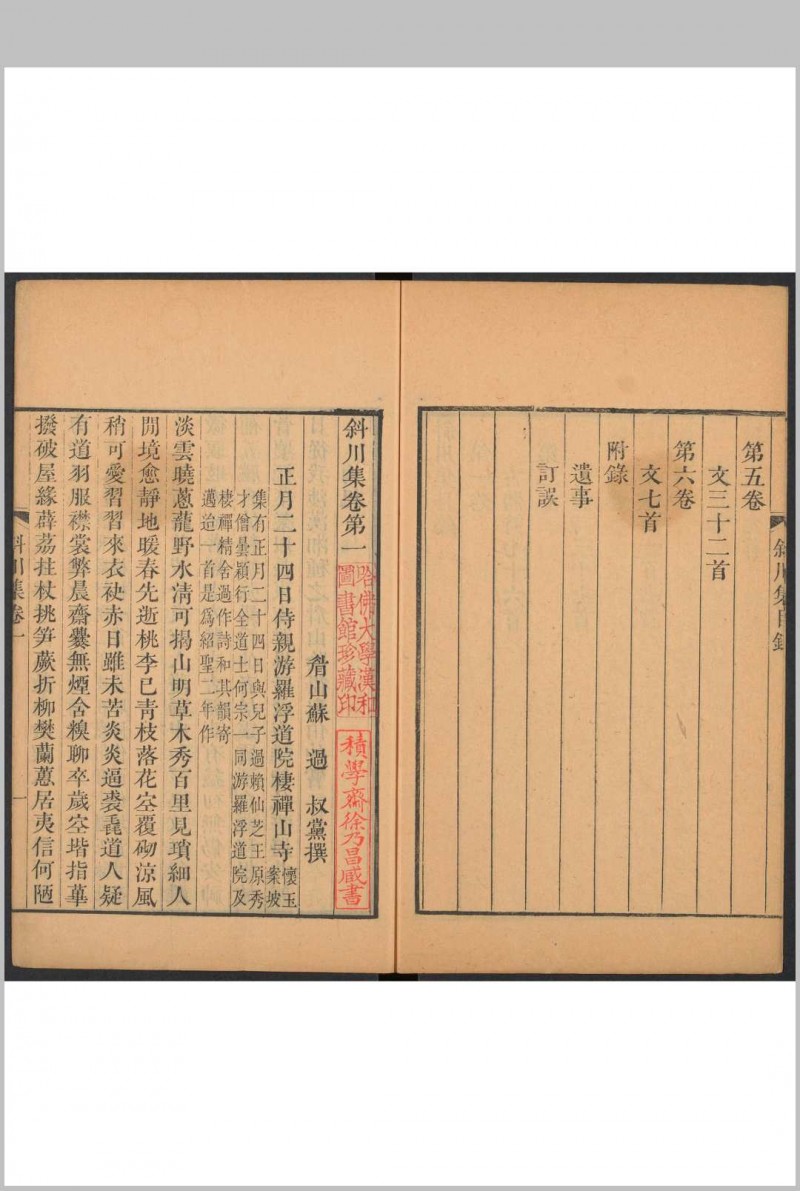 第五卷
文三十二首
第六卷
文七首
附錄
遺事
訂誤
斜川集目錄
斜川集卷第一
哈佛大學漢和
圖書館珍藏印
積學齋徐乃昌藏書
眉山蘇　過　叔黨撰
正月二十四日侍親游羅浮道院棲禪山寺懷玉
案坡
集有正月二十四日與兒子過賴仙芝王原秀
才僧曇穎行全道士何宗一同游羅浮道院及
棲禪精舍過作詩和其韻寄
邁迨一首是為紹聖二年作
淡雲曉蔥蘢野水清可揭山明草木秀百里見瑣細人
閒境愈靜地暖春先逝桃李已青枝落花空覆砌涼風
稍可愛習習來衣袂赤日雖未苦炎炎逼裘毳道人疑
有道羽服襟裳弊晨齋爨無煙舍糗聊卒歲空堦指蓽
撥破屋緣薜荔拄杖挑笋蕨折柳樊蘭蕙居夷信何陋
斜川集卷一
一